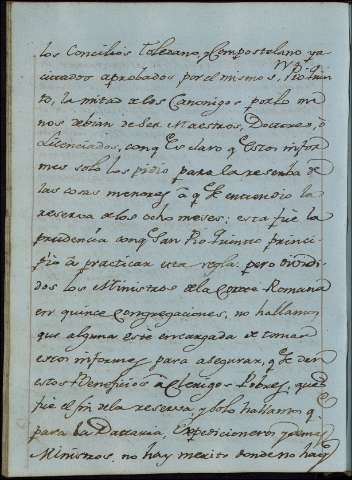 los Concilios Toledano, y Compostelano ya
citados aprobados por el mismo S. Pio Quin
to, la mitad de los Canonigos por lo me
nos debian de ser Maestros, Doctores, ò
Licenciados, conq. es claro q. estos infor
mes solo los pidio para la reserba de
las cosas menores à q. se entendio la
reserva de los ocho meses; esta fue la
prudencia conq. San Pio Quinto princi-
piò à practicar esta regla; pero dividi-
dos los Ministros de la Corte Romana
en quince Congregaciones, no hallamos
que alguna este encargada de tomar
estos informes para asegurar, q. se den
estos Beneficios à Clerigos Pobres, que
fue el fin de la reserva, y solo hallamos q.
para la Dataria, Expedicioneros y demas
Ministros, no hay merito donde no hay